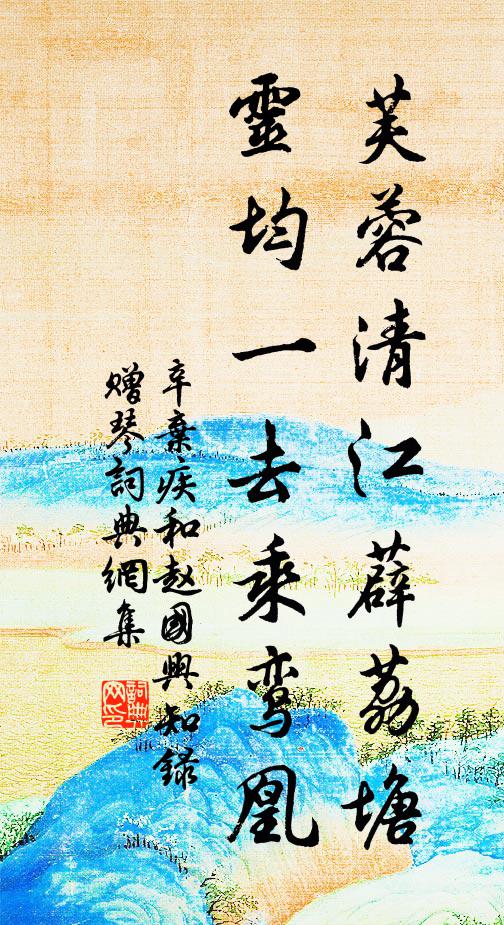 芙蓉清江薜荔塘
靈均一去乘鸾凰
辛棄疾和赵國興知錄
赠琴詞典網集
詞典网印